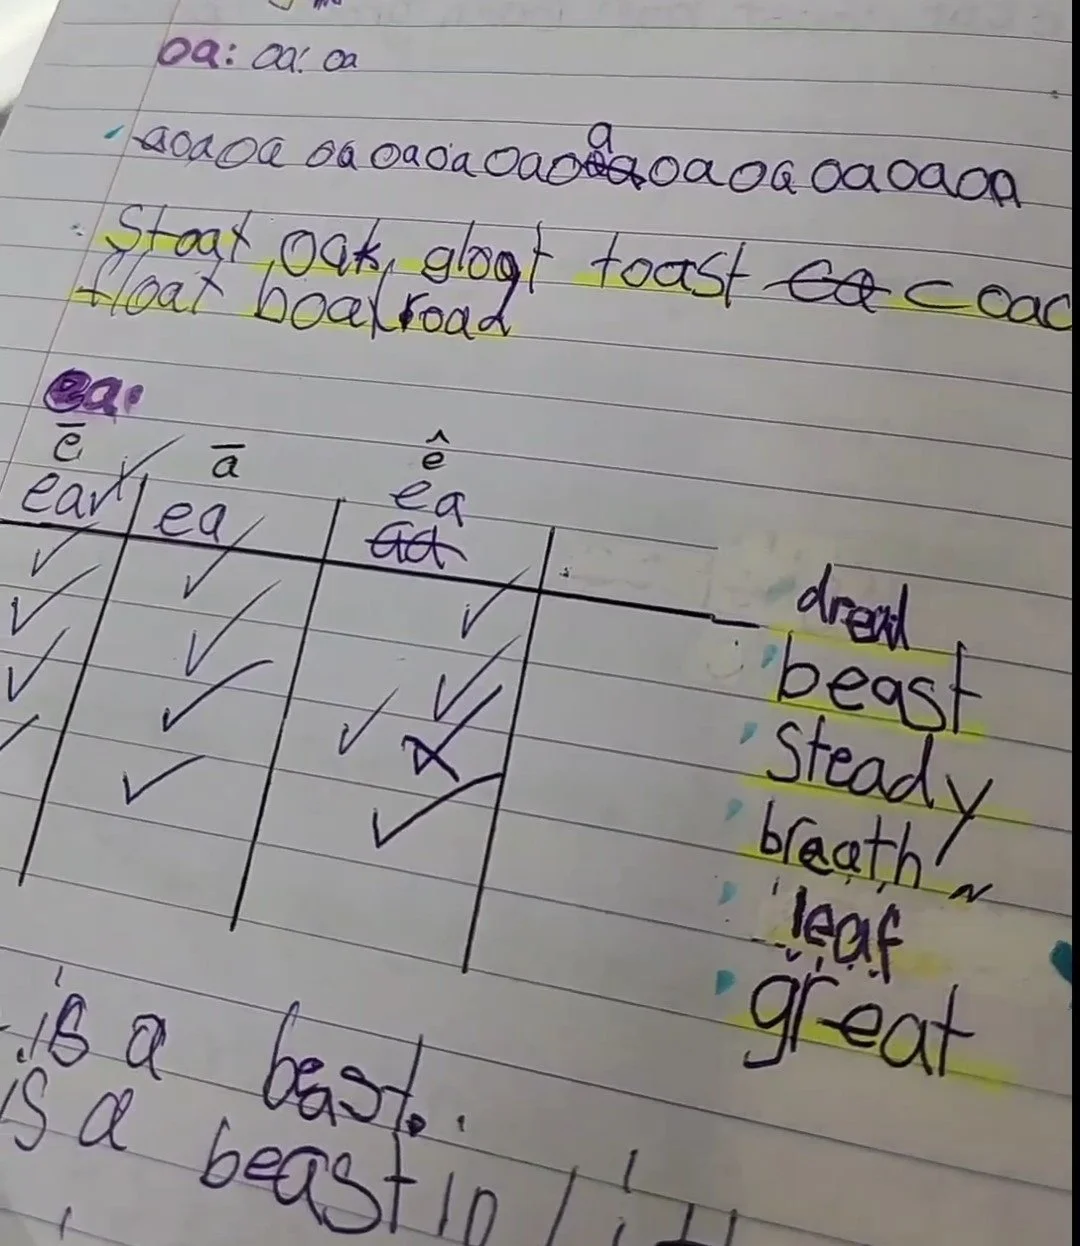 oa: oa: oa
aoaoa oa oaoa oaoa oaoa oaoaoa
Stoat, oak, gloat toast ea coac
float boat road
ea:
ē ā ê
ear ea ea
dread
beast
steady
breath
leaf
great
is a beast.
is a beast in